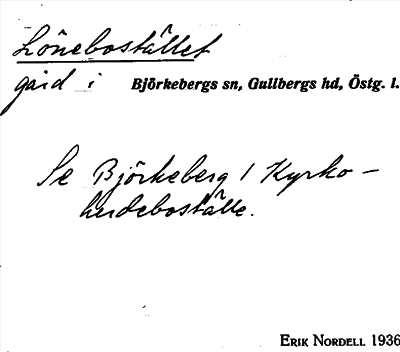 Lönebostället
gård i Björkebergs sn, Gullbergs hd, Östg. l.
Se Björkeberg 1 Kyrko-
herdeboställe.
ERIK NORDELL 1936